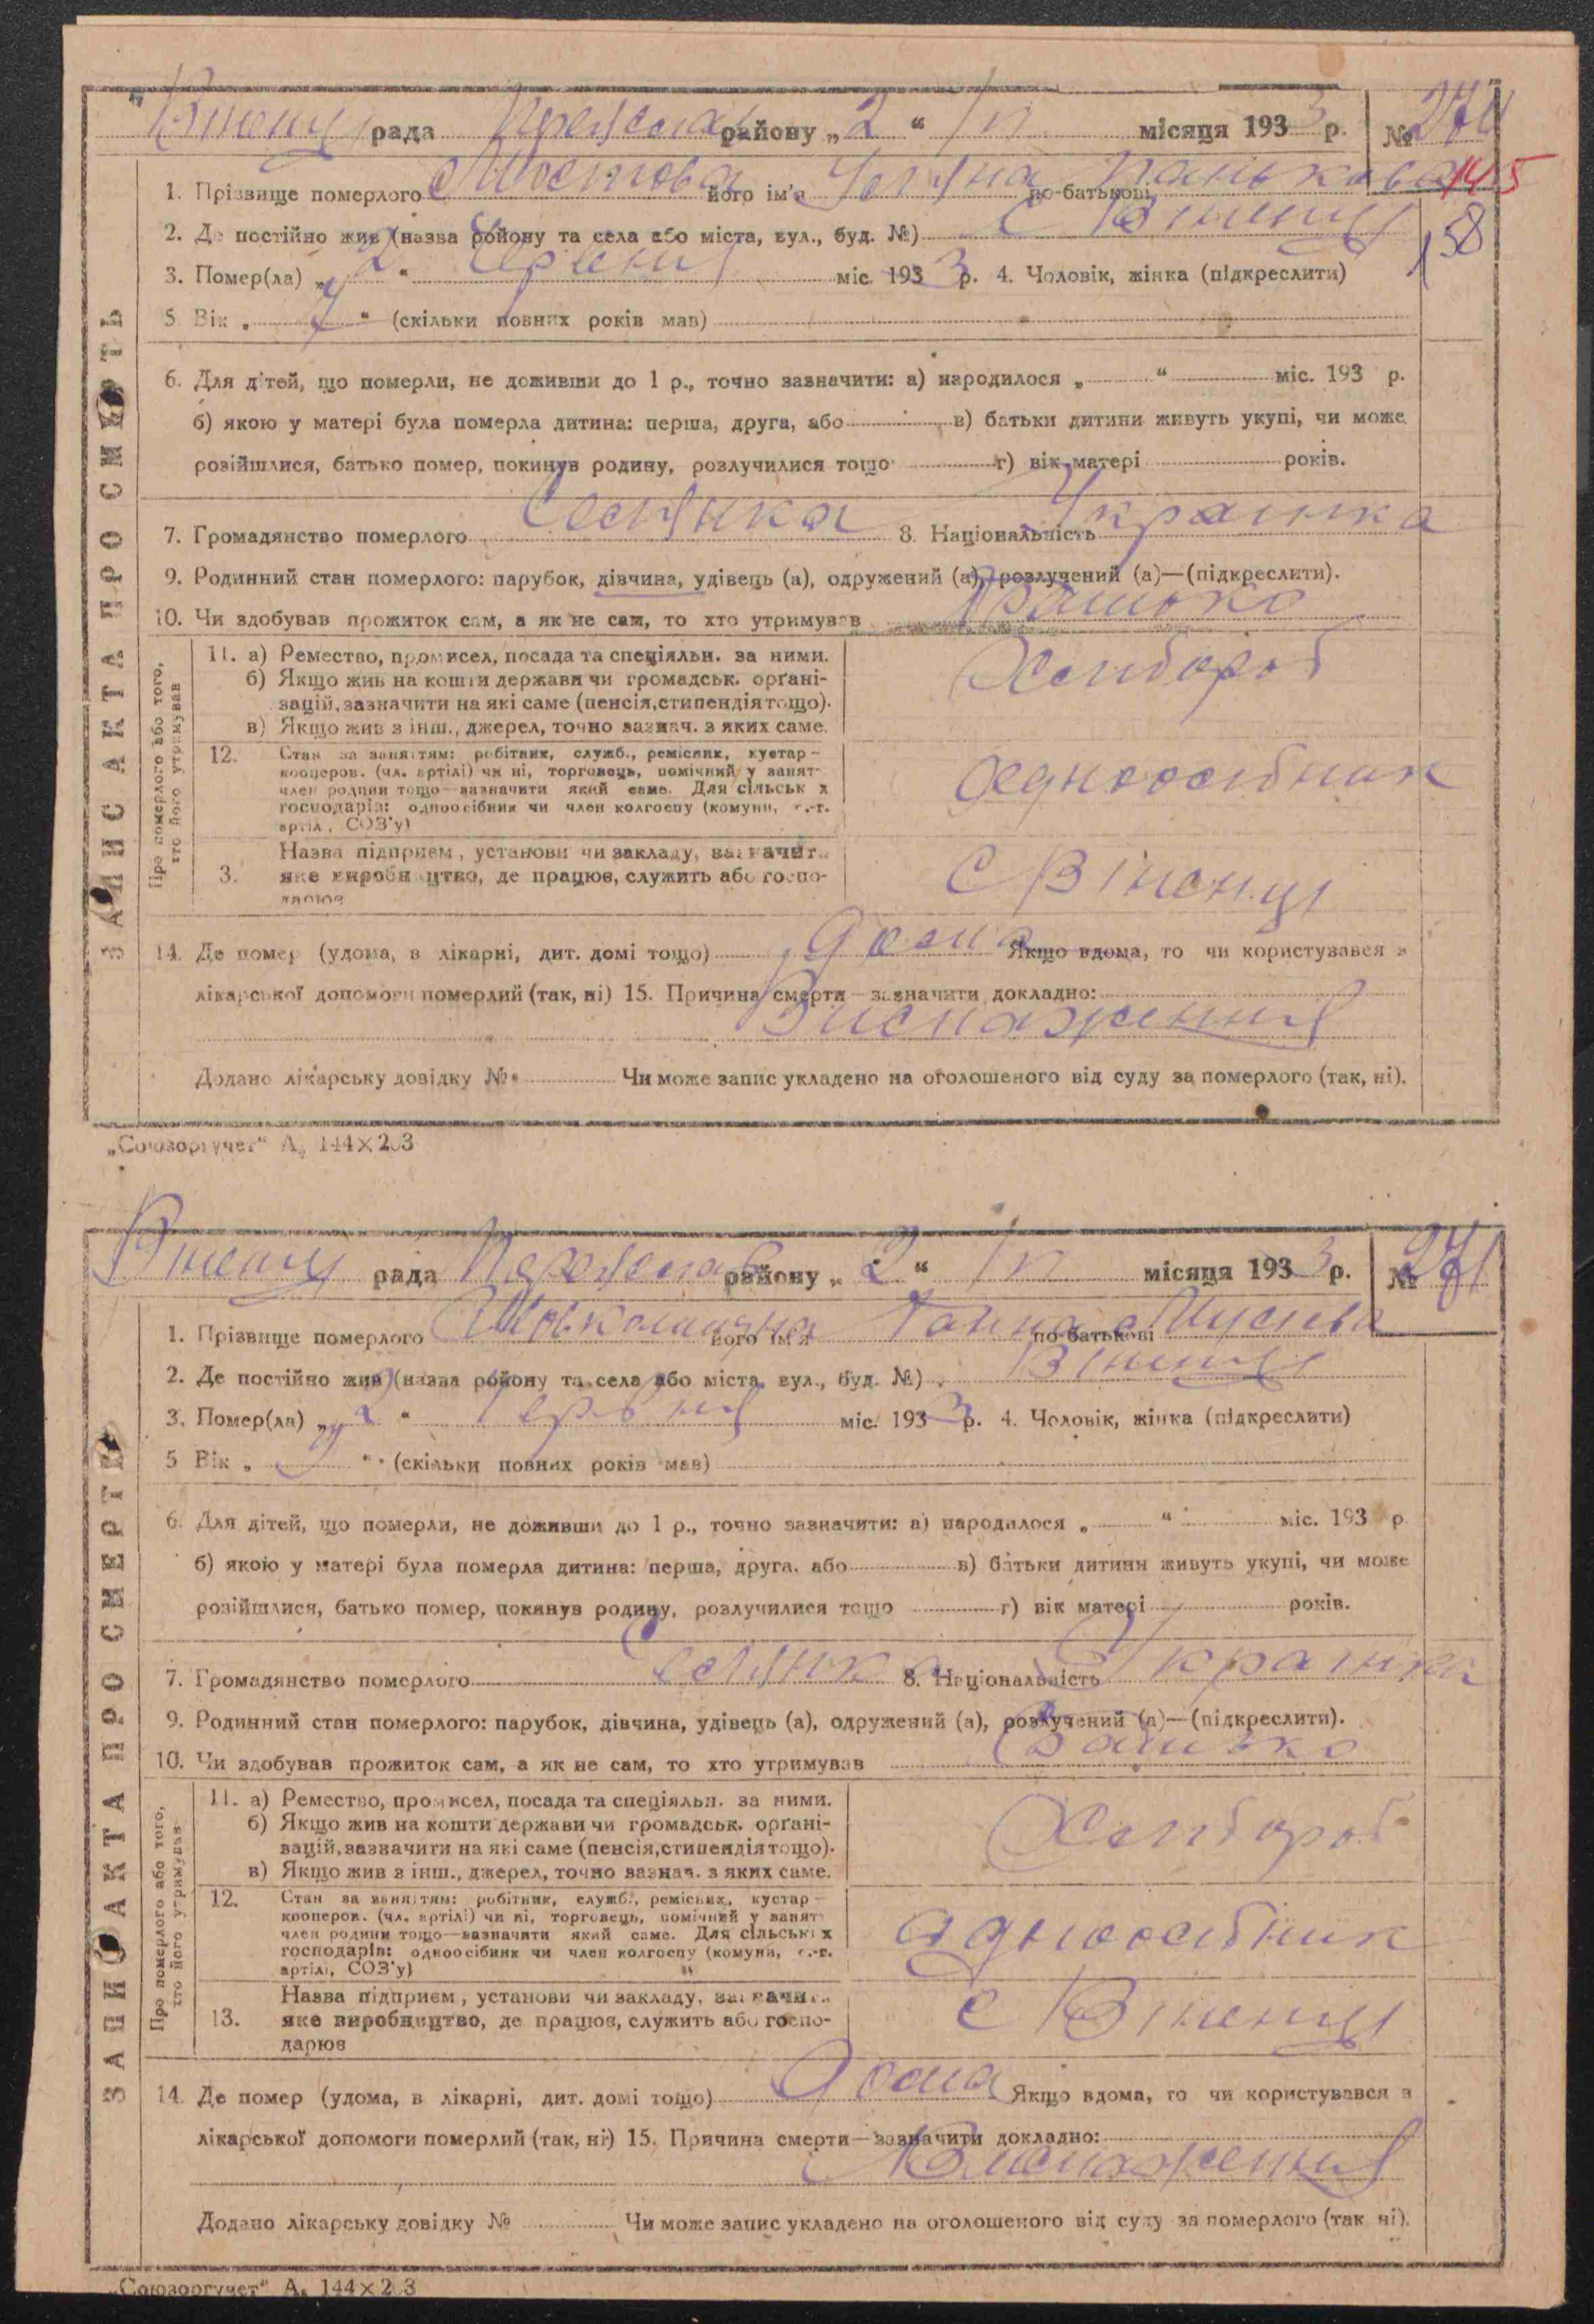 рада району „ 2 “ місяця 1933 р. №
1. Прізвище померлого Мостова його ім'я Уляна по-батькові Панькова 145
2. Де постійно жив (назва району та села або міста, вул., буд. №) с Вінинці 158
3. Помер(ла) „ 2 “ Червня міс. 1933 р. 4. Чоловік, жінка (підкреслити)
5 Вік „ 7 “ (скільки повних років мав)
6. Для дітей, що померли, не доживши до 1 р., точно зазначити: а) народилося „ “ міс. 193 р.
б) якою у матері була померла дитина: перша, друга, або в) батьки дитини живуть укупі, чи може
розійшлися, батько помер, покинув родину, розлучилися тощо г) вік матері років.
7. Громадянство померлого Селянка 8. Національність Українка
9. Родинний стан померлого: парубок, дівчина, удівець (а), одружений (а), розлучений (а)—(підкреслити).
10. Чи здобував прожиток сам, а як не сам, то хто утримував Батько
ЗАПИС АКТА ПРО СМЕРТЬ
Про померлого або того, хто його утримував
11. а) Ремество, промисел, посада та спеціяльн. за ними. Хлібороб
б) Якщо жив на кошти держави чи громадськ. орґані-
зацій, зазначити на які саме (пенсія, стипендія тощо).
в) Якщо жив з інш., джерел, точно зазнач. з яких саме.
12. Стан за заняттям: робітник, служб., ремісник, кустар—
кооперов. (чл. артілі) чи ні, торговець, помічний у занят-
член родини тощо—зазначити який саме. Для сільськ х Одноосібник
господарів: одноосібник чи член колгоспу (комуни, с.-г.
артіл, СОЗ'у)
Назва підприєм, установи чи закладу, зазначит
3. яке виробництво, де працює, служить або госпо- с Вінинці
дарює
14. Де помер (удома, в лікарні, дит. домі тощо) Дома Якщо вдома, то чи користувався з
лікарської допомоги померлий (так, ні) 15. Причина смерти—зазначити докладно:
Виснаження
Додано лікарську довідку № Чи може запис укладено на оголошеного від суду за померлого (так, ні).
„Союзоргучет“ А₅ 144×203
рада району „ 2 “ місяця 1933 р. №
1. Прізвище померлого його ім'я Ганна по-батькові Мусієва
2. Де постійно жив (назва району та села або міста, вул., буд. №) Вінинці
3. Помер(ла) „ 2 “ Червня міс. 1933 р. 4. Чоловік, жінка (підкреслити)
5 Вік „ “ (скільки повних років мав)
6. Для дітей, що померли, не доживши до 1 р., точно зазначити: а) народилося „ “ міс. 193 р
б) якою у матері була померла дитина: перша, друга, або в) батьки дитини живуть укупі, чи може
розійшлися, батько помер, покинув родину, розлучилися тощо г) вік матері років.
7. Громадянство померлого Селянка 8. Національність Українка
9. Родинний стан померлого: парубок, дівчина, удівець (а), одружений (а), розлучений (а)—(підкреслити).
10. Чи здобував прожиток сам, а як не сам, то хто утримував Батько
ЗАПИС АКТА ПРО СМЕРТЬ
Про померлого або того, хто його утримував
11. а) Ремество, промисел, посада та спеціяльн. за ними. Хлібороб
б) Якщо жив на кошти держави чи громадськ. орґані-
зацій, зазначити на які саме (пенсія, стипендія тощо).
в) Якщо жив з інш., джерел, точно зазнач. з яких саме.
12. Стан за заняттям: робітник, служб., ремісник, кустар—
кооперов. (чл. артілі) чи ні, торговець, помічний у занят
член родини тощо—зазначити який саме. Для сільських Одноосібник
господарів: одноосібник чи член колгоспу (комуни, с.-г.
артілі, СОЗ'у)
Назва підприєм, установи чи закладу, зазначити
13. яке виробництво, де працює, служить або госпо- с Вінинці
дарює
14. Де помер (удома, в лікарні, дит. домі тощо) Дома Якщо вдома, то чи користувався з
лікарської допомоги померлий (так, ні) 15. Причина смерти—зазначити докладно:
Виснаження
Додано лікарську довідку № Чи може запис укладено на оголошеного від суду за померлого (так ні).
„Союзоргучет“ А₅ 144×203